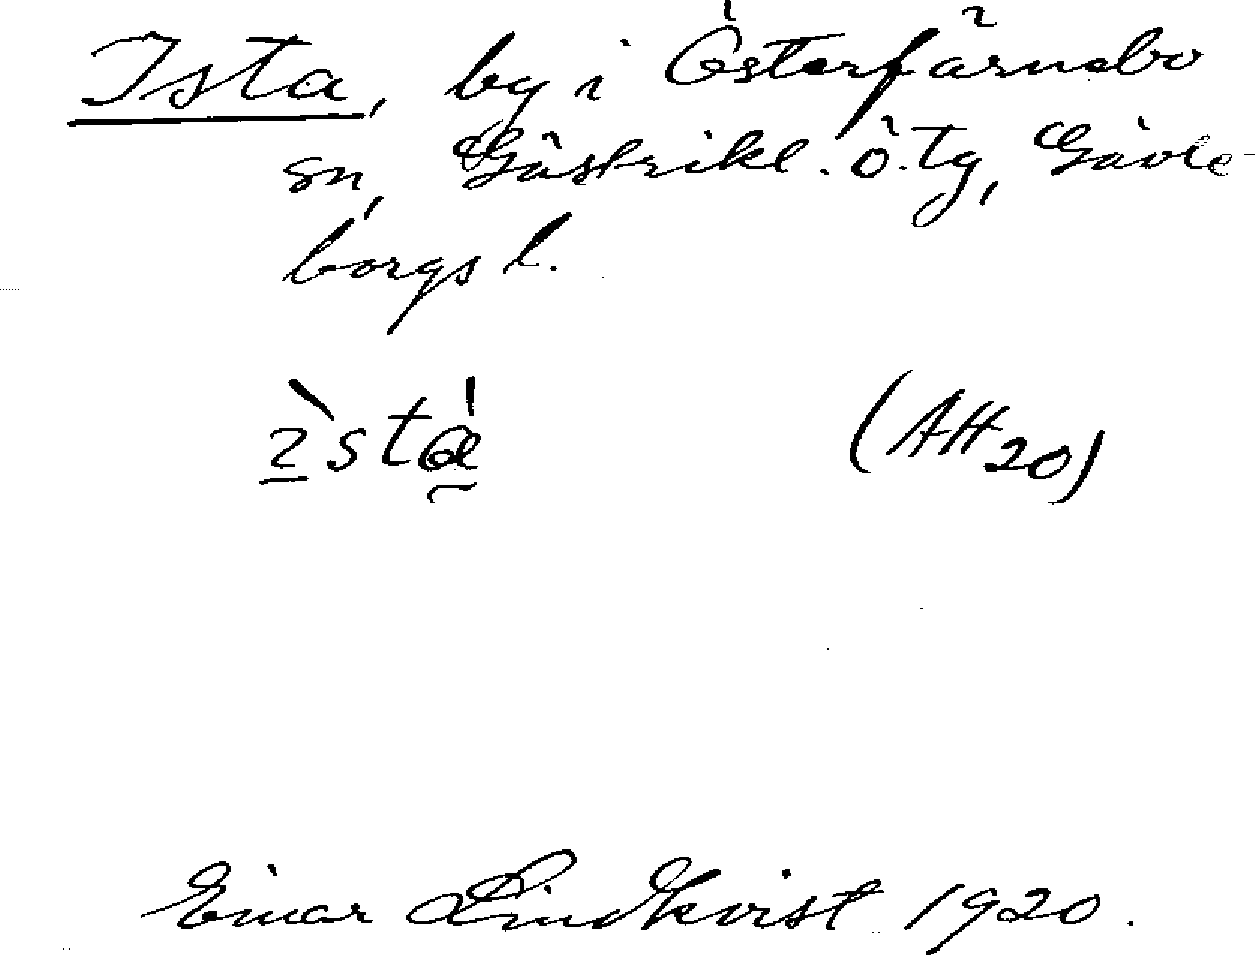 Ista, by i Österfärnebo
sn, Gästrikl. ö. tg, Gävle-
borgs l.
ı̀sta̍ (AH 20)
Einar Lindkvist 1920.